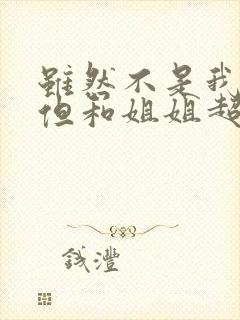 雖然不是我
但和姐姐超
錢灃